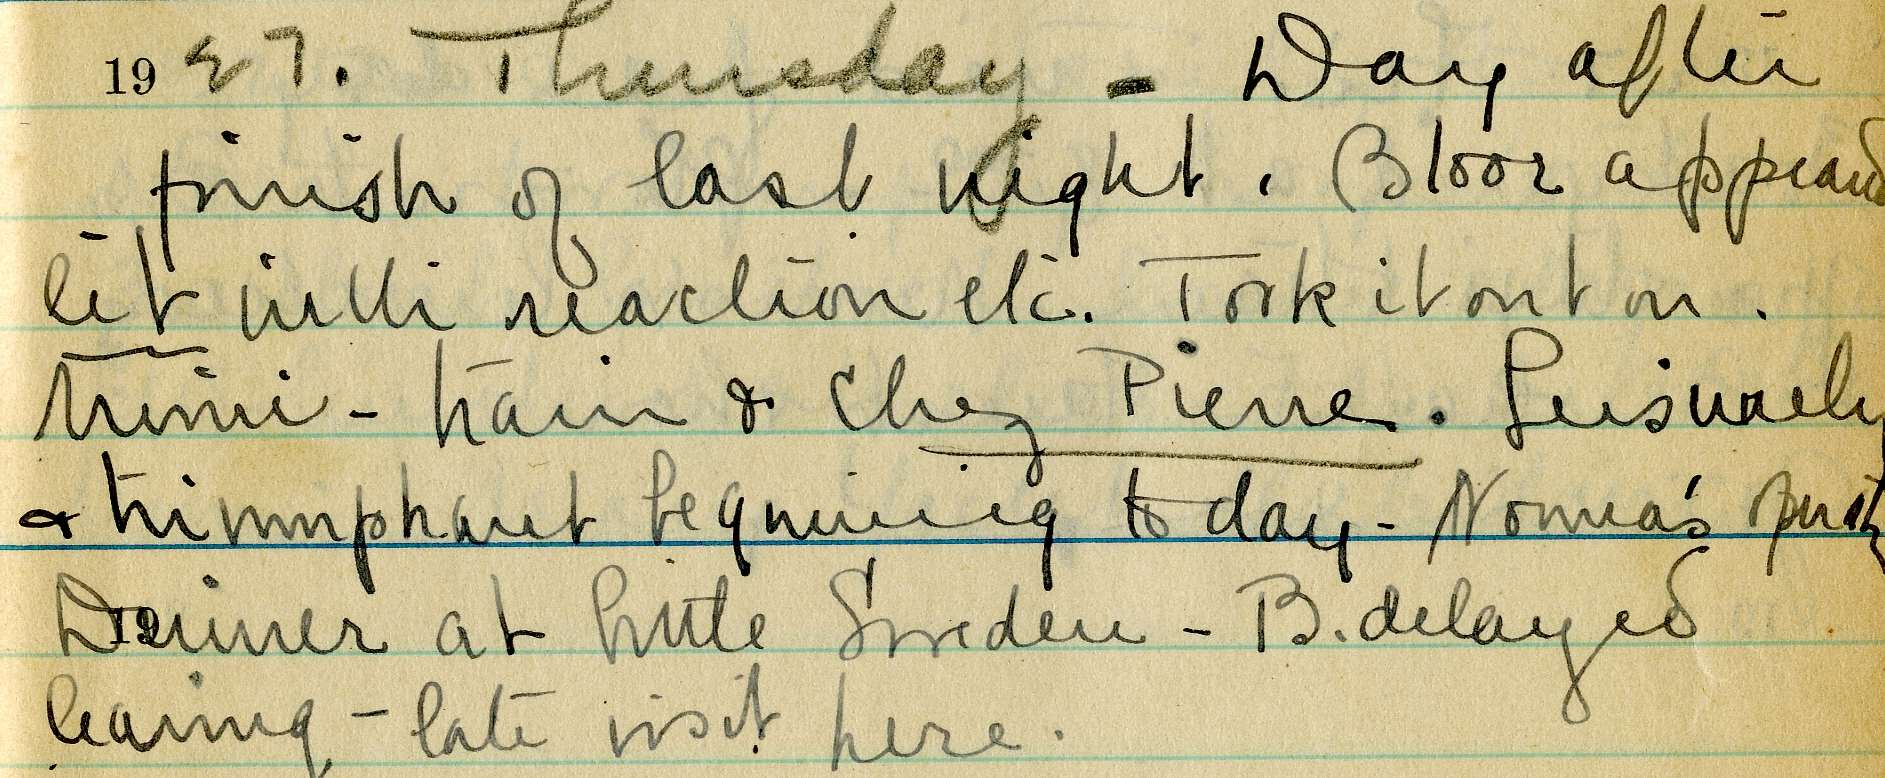 1927. Thursday - Day after
finish of last night. Bloor appeared
lit with reaction etc. Took it out on
Mimi - train & Chez Pierre. Leisurely
& triumphant beginning today - Norma's
Dinner at Little Sweden - B. delayed
19
leaving - late visit here.